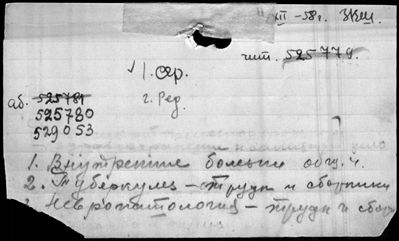 XII - 58г. Экш.
чит. 525779.
1 сер.
г. Ред.
аб. 525781
525780
529053
1. Внутренние болезни общ. ч.
2. Туберкулез - труды и сборники
3. Невропатология - труды и сбор